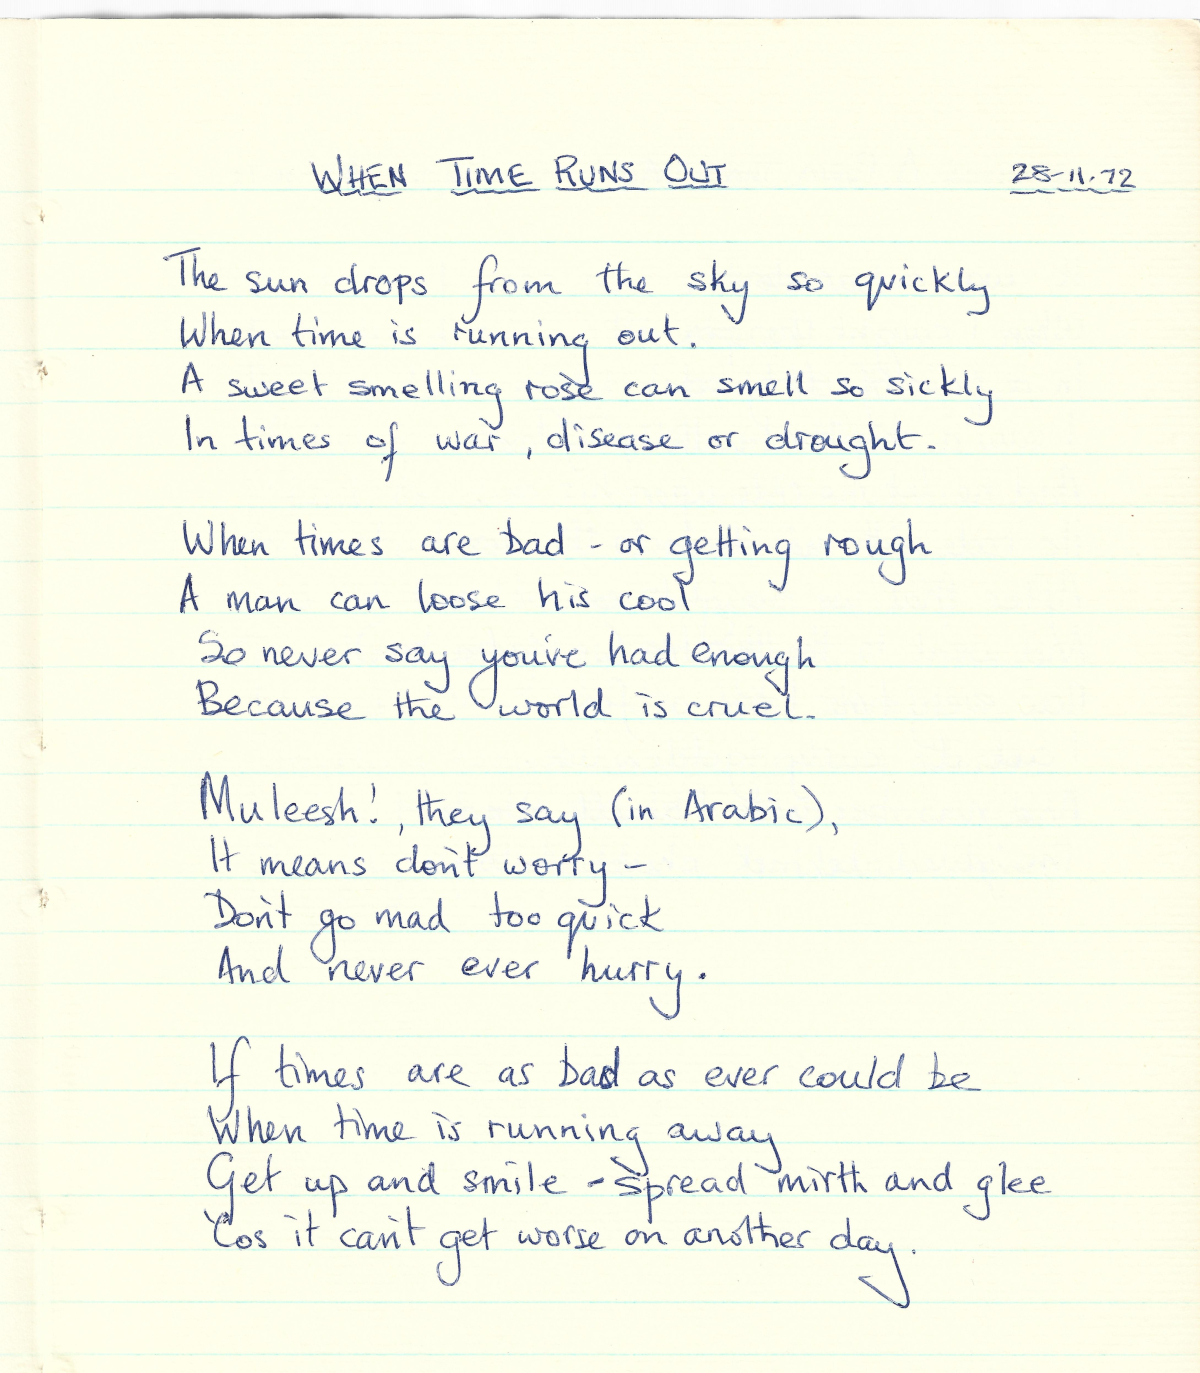 WHEN TIME RUNS OUT 28-11-72
The sun drops from the sky so quickly
When time is running out.
A sweet smelling rose can smell so sickly
In times of war, disease or drought.
When times are bad - or getting rough
A man can loose his cool
So never say you've had enough
Because the world is cruel.
Muleesh!, they say (in Arabic),
It means don't worry -
Don't go mad too quick
And never ever hurry.
If times are as bad as ever could be
When time is running away
Get up and smile - spread mirth and glee
'Cos it can't get worse on another day.